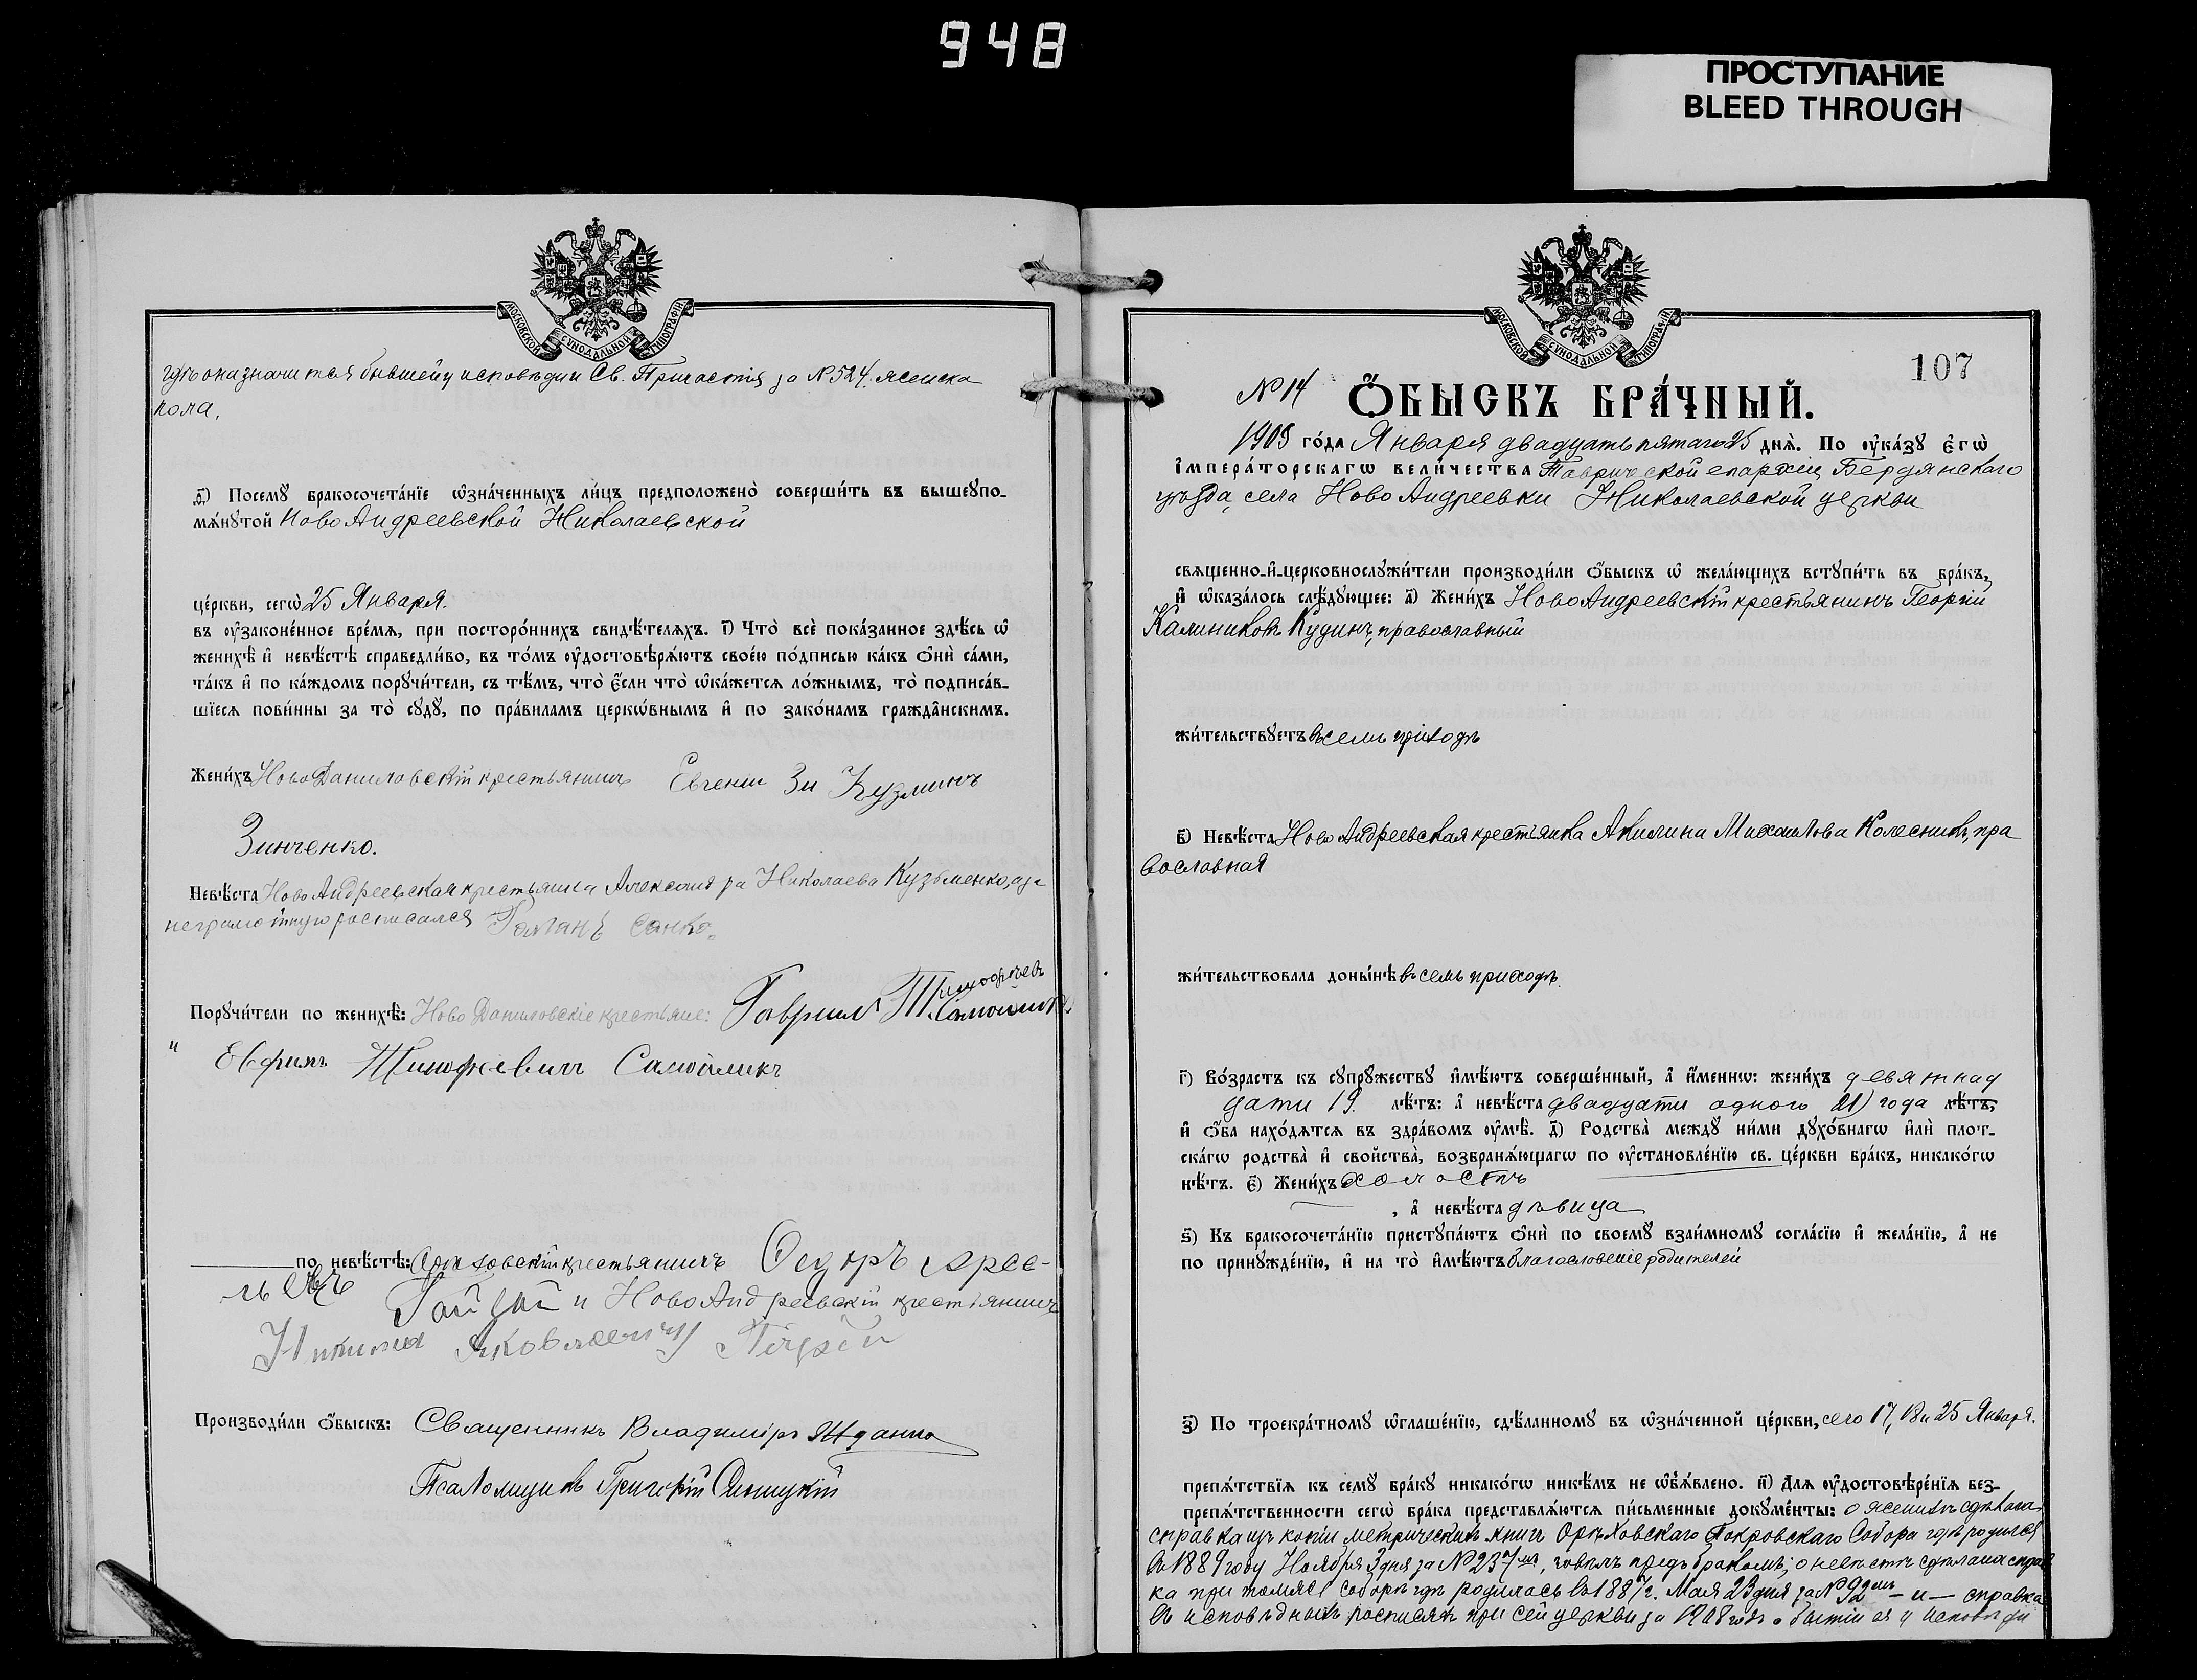 948
ПРОСТУПАНИЕ
BLEED THROUGH
МОСКОВСКОЙ СѴНОДАЛЬНОЙ ТИПОГРАФІИ
гдѣ она значится бывшей у исповѣди и Св. Причастія за № 524. женска
пола.
д҃) Посемꙋ бракосочета́нїе ѡ҆зна́ченныхъ ли́цъ предположено̀ соверши́ть въ вышеупо-
мѧ́нꙋтой НовоАндреевской Николаевской
це́ркви, сегѡ̀ 25 Января.
въ ѹ҆законе́нное вре́мѧ, при посторо́ннихъ свидѣ́телѧхъ. і҃) Что̀ всѐ пока́занное здѣ́сь ѡ҆
женихѣ̀ и҆ невѣ́стѣ справедли́во, въ то́мъ ѹ҆достовѣрѧ́ютъ свое́ю по́дписью ка́къ ѻ҆нѝ са́ми,
та́къ и҆ по ка́ждомъ порꙋчи́тели, съ тѣ́мъ, что̀ є҆́сли что̀ ѡ҆ка́жетсѧ ло́жнымъ, то̀ подписа́в-
шїесѧ пови́нны за то̀ сꙋдꙋ̀, по пра́виламъ церко́внымъ и҆ по зако́намъ гражда́нскимъ.
Жени́хъ НовоДаниловскій крестьянинъ Евгеній Зи Кузминъ
Зинченко.
Невѣ́ста НовоАндреевская крестьянка Александра Николаева Кузьменко, а за
неграмотную росписался Романъ Санко.
Порꙋчи́тели по женихѣ̀: НовоДаниловскіе крестьяне: Гаврилъ Тимофѣевъ Самойликъ
и Евфимъ Тимофѣевичъ Самойликъ
по невѣ́стѣ: Орѣховскій крестьянинъ Ѳедоръ
и НовоАндреевскій крестьянинъ
Никита Яковлевичъ
Производи́ли ѻ҆́быскъ: Священникъ Владиміръ Жданко
Псаломщикъ Григорій
МОСКОВСКОЙ СѴНОДАЛЬНОЙ ТИПОГРАФІИ
107
№ 14
Ѻ҆́БЫСКЪ БРА́ЧНЫЙ.
1909 го́да Января двадцать пятаго 25 днѧ̀. По ѹ҆ка́зꙋ Є҆гѡ̀
І҆мпера́торскагѡ вели́чества Таврической епархіи, Бердянскаго
уѣзда, села НовоАндреевки Николаевской церкви
свѧщенно-и҆-церковнослꙋжи́тели производи́ли ѻ҆́быскъ ѡ҆ жела́ющихъ встꙋпи́ть въ бра́къ,
и҆ ѡ҆каза́лось слѣ́дꙋющее: а҃) Жени́хъ НовоАндреевскій крестьянинъ Георгій
Калиниковъ Кудинъ, православный
жи́тельствꙋетъ въ семъ приходѣ
в҃) Невѣ́ста НовоАндреевская крестьянка Акилина Михаилова Колесникъ, пра
вославная
жи́тельствовала доны́нѣ въ семъ приходѣ.
г҃) Во́зрастъ къ сꙋпрꙋ́жествꙋ и҆мѣ́ютъ соверше́нный, а҆ и҆́меннѡ: жени́хъ девятнад
цати 19. лѣ́тъ: а҆ невѣ́ста двадцати одного 21) года лѣ́тъ,
и҆ ѻ҆́ба нахо́дѧтсѧ въ здра́вомъ ѹ҆мѣ̀. д҃) Родства̀ междꙋ̀ ни́ми дꙋхо́внагѡ и҆лѝ плот-
ска́гѡ родства̀ и҆ сво́йства, возбранѧ́ющагѡ по ѹ҆становле́нїю св. це́ркви бра́къ, никако́гѡ
нѣ́тъ. є҃) Жени́хъ холостъ
, а҆ невѣ́ста дѣвица
ѕ҃) Къ бракосочета́нїю пристꙋпа́ютъ ѻ҆нѝ по своемꙋ̀ взаи́мномꙋ согла́сїю и҆ жела́нїю, а҆ не
по принꙋжде́нїю, и҆ на то̀ и҆мѣ́ютъ благословеніе родителей
з҃) По троекра́тномꙋ ѡ҆глаше́нїю, сдѣ́ланномꙋ въ ѡ҆зна́ченной це́ркви, сего 17, 18 и 25 Января.
препѧ́тствїѧ къ семꙋ̀ бра́кꙋ никако́гѡ никѣ́мъ не ѡ҆б̾ѧ́влено. и҃) Длѧ ѹ҆достовѣре́нїѧ без-
препѧ́тственности сегѡ̀ бра́ка представлѧ́ютсѧ пи́сьменные докꙋме́нты: о женихѣ сдѣлана
справка изъ копіи метрическихъ книгъ Орѣховскаго Покровскаго Собора гдѣ родился
въ 1889 году Ноября 3 дня за № 237 мъ, говѣлъ предъ бракомъ; о невѣстѣ сдѣлана справ
ка при томже Соборѣ гдѣ родилась въ 1887 г. Мая 23 дня за № 92 мъ — и — справка
въ исповѣдныхъ росписяхъ при сей церкви за 1908 годъ о бытіи ея у исповѣди